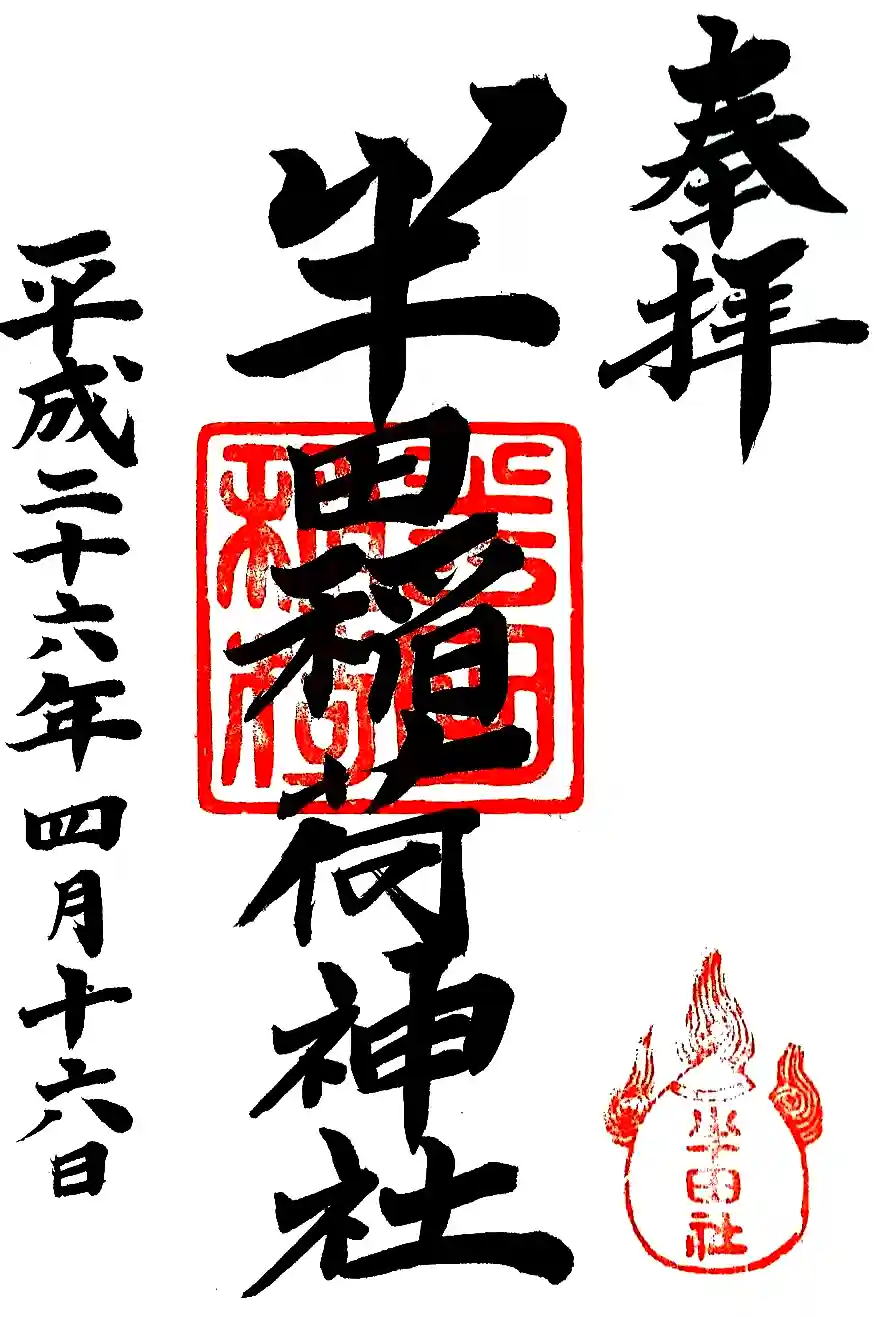 奉拝
半田稲荷神社
半田稲荷
半田社
平成二十六年四月十六日